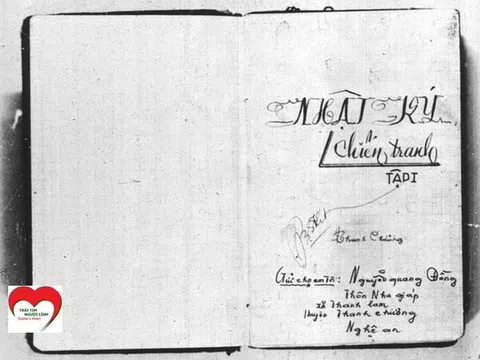 NHẬT KÝ
Chiến tranh
TẬP I
Thanh Chương
Gửi cho em tôi: Nguyễn quang Đồng
Thôn Nha giáp
xã Thanh lam
huyện Thanh chương
Nghệ an
TRÁI TIM
NGƯỜI LÍNH